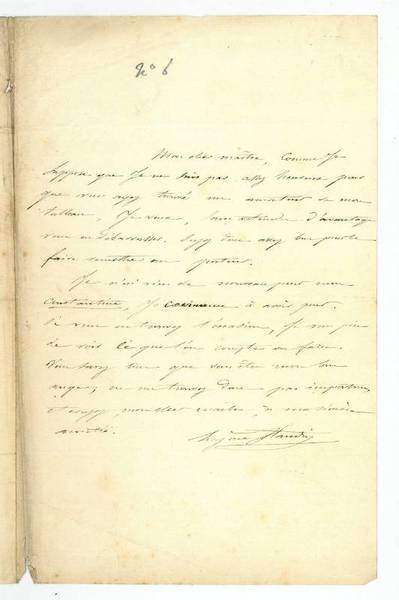 No 6
Mon cher maître, comme je
suppose que je ne suis pas assez heureuse pour
que vous ayez trouvé un amateur de mon
tableau, je veux, sans attendre d'avantage
vous en débarrasser. Soyez donc assez bon pour le
faire remettre au porteur.
Je n'ai rien de nouveau pour mon
Constantine, je commence à avoir peur.
Si vous en trouvez l'occasion, je vous prie
de voir ce que l'on compte en faire.
Vous savez bien que vous êtes mon bon
ange; ne me trouvez donc pas importune
et croyez, mon cher maître, à ma sincère
amitié.